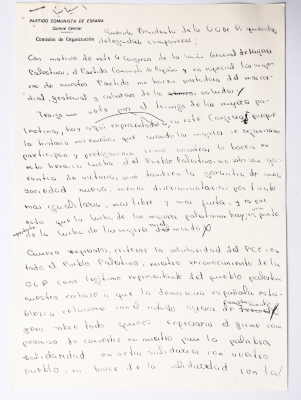 PARTIDO COMUNISTA DE ESPAÑA
Comité Central
Comisión de Organización
Querida Presidenta de la UGMP queridas
delegadas compañeras:
Con motivo de este 4 congreso de la Unión General de Mujeres
Palestinas, el Partido Comunista de España y en especial las muje-
res de nuestro Partido me hacen portadora del más cor-
dial, fraternal y caluroso de los saludos/
Traigo
este por el triunfo de la mujer pa-
lestina, hoy aquí representada en este Congreso porque
la historia nos enseña, que cuando la mujer se organiza
participa y protagoniza como vosotras lo hacéis en
esta heroica lucha del Pueblo Palestino, no sólo son ga-
rantía de victoria, sino también la garantía de una
sociedad nueva, menos discriminatoria por tanto
más igualitaria, más libre y más justa, y es por
esto que la lucha de las mujeres palestinas hoy es parte
de la lucha de las mujeres del mundo/
Quiero expresaros, reiterar la solidaridad del PCE con
todo el Pueblo Palestino, nuestro reconocimiento de la
OLP como legítimo representante del pueblo palestino
nuestro rechazo a que la democracia española esta-
blezca relaciones con el estado agresor de
pero sobre todo quiero expresaros el firme com-
promiso de convertir en nuestro país la palabra
solidaridad en actos solidarios con vuestro
pueblo, en hacer de la solidaridad con la